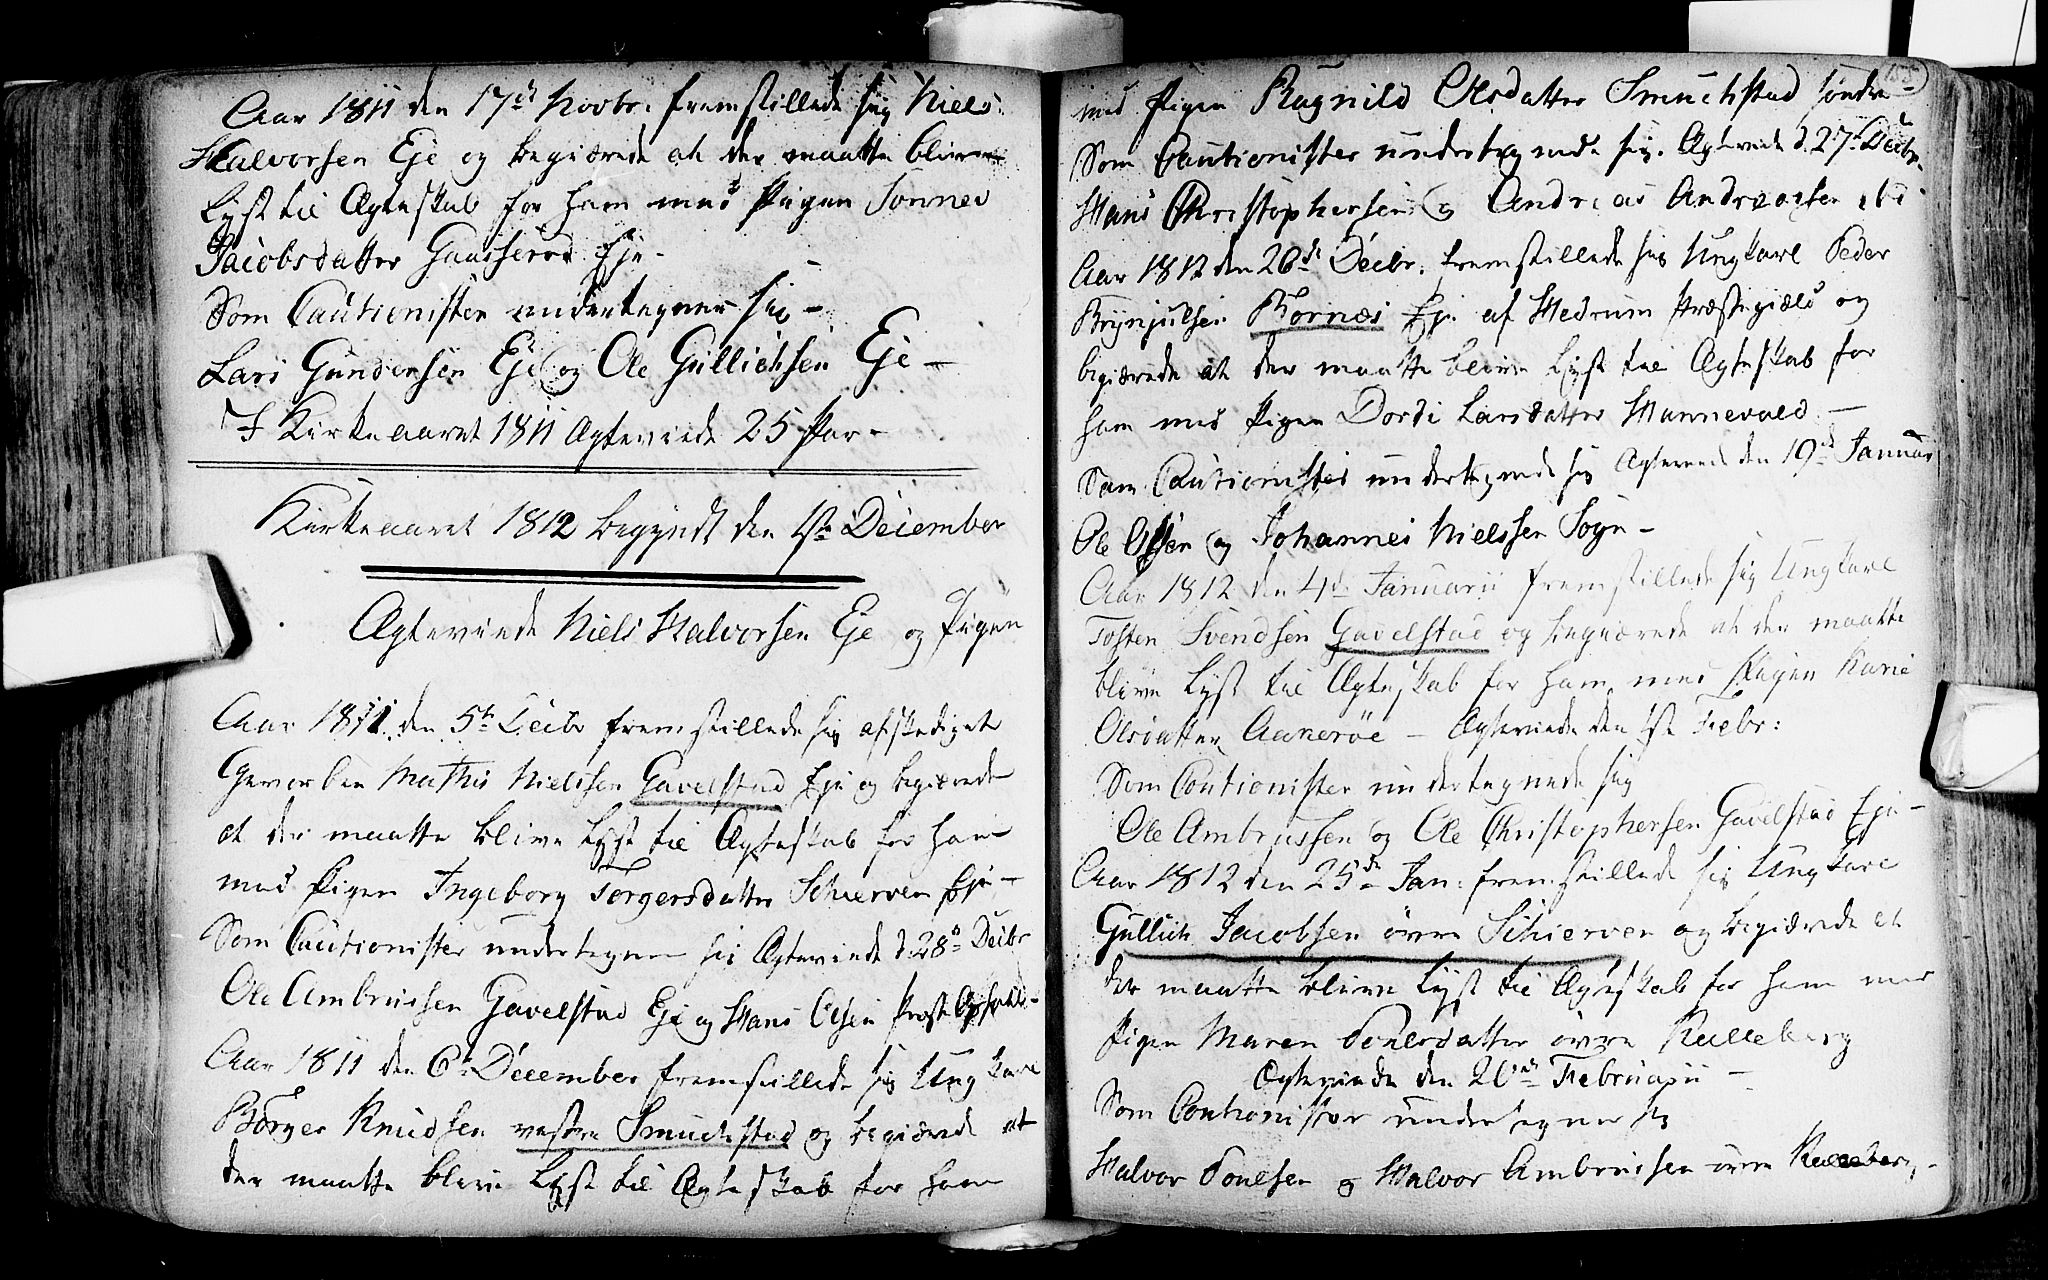 Aar 1811 den 17de Novbr. fremstillede sig Niels
Halvorsen Eje og begiærede at der maatte blive
lyst til Ægteskab for ham med Pigen Tonnes
Jacobsdatter Gaasserød Eje.
Som Cautionister undertegner sig –
Lars Gundersen Eje og Ole Gullichsen Eje –
I Kirkeaaret 1811 Ægteviede 25 Par –
Kirkeaaret 1812 begyndt den 1ste December
Ægteviede Niels Halvorsen Eje og Pigen
Aar 1811 den 5te Decbr fremstillede sig afskediget
Gevorben Mathis Nielssen Gavelstad Eje og begiærede
at der maatte blive lyst til Ægteskab for ham
med Pigen Ingeborg Torgersdatter Schierven Eje –
Som Cautionister undertegner sig Ægteviede d. 28de Decbr
Ole Ambrussen Gavelstad Eje og Hans Olsen
Aar 1811 den 6te December fremstillede sig Ung Karl
Børger Knudsen vestre Smuchstad og begiærede at
der maatte blive lyst til Ægteskab for ham
155
med Pigen Ragnild Olsdatter Smuchstad søndre –
Som Cautionister undertegnede sig. Ægteviede d. 27de Decbr.
Hans Christophersen og Andreas Andreasen ibd
Aar 1812 den 26de Decbr. fremstillede sig Ungkarl Peder
Brynjulsen Bornes Eje af Hedrum Præstegield og
begiærede at der maatte blive lyst til Ægteskab for
ham med Pigen Dordi Larsdatter Hannevold –
Som Cautionister undertegnede sig Ægteviede den 19de Januar
Ole Olsen og Johannes Nielssen Sogn –
Aar 1812 den 4de Januarii fremstillede sig Ungkarl
Tosten Svendsen Gavelstad og begiærede at der maatte
blive lyst til Ægteskab for ham med Pigen Karie
Olsdatter Aanerøe – Ægteviede den 1ste Febr:
Som Coutionister undertegnede sig
Ole Ambrussen og Ole Christophersen Gavelstad Eje –
Aar 1812 den 25de Jan: fremstillede sig Ungkarl
Gullich Jacobsen øvre Schierven og begiærede at
der maatte blive lyst til Ægteskab for ham med
Pigen Maren Povelsdatter øvre Rulleberg
Ægteviede den 20de Februarii –
Som Coutionister undertegner sig
Halvor Poulsen og Halvor Ambrussen øvre Rulleberg –